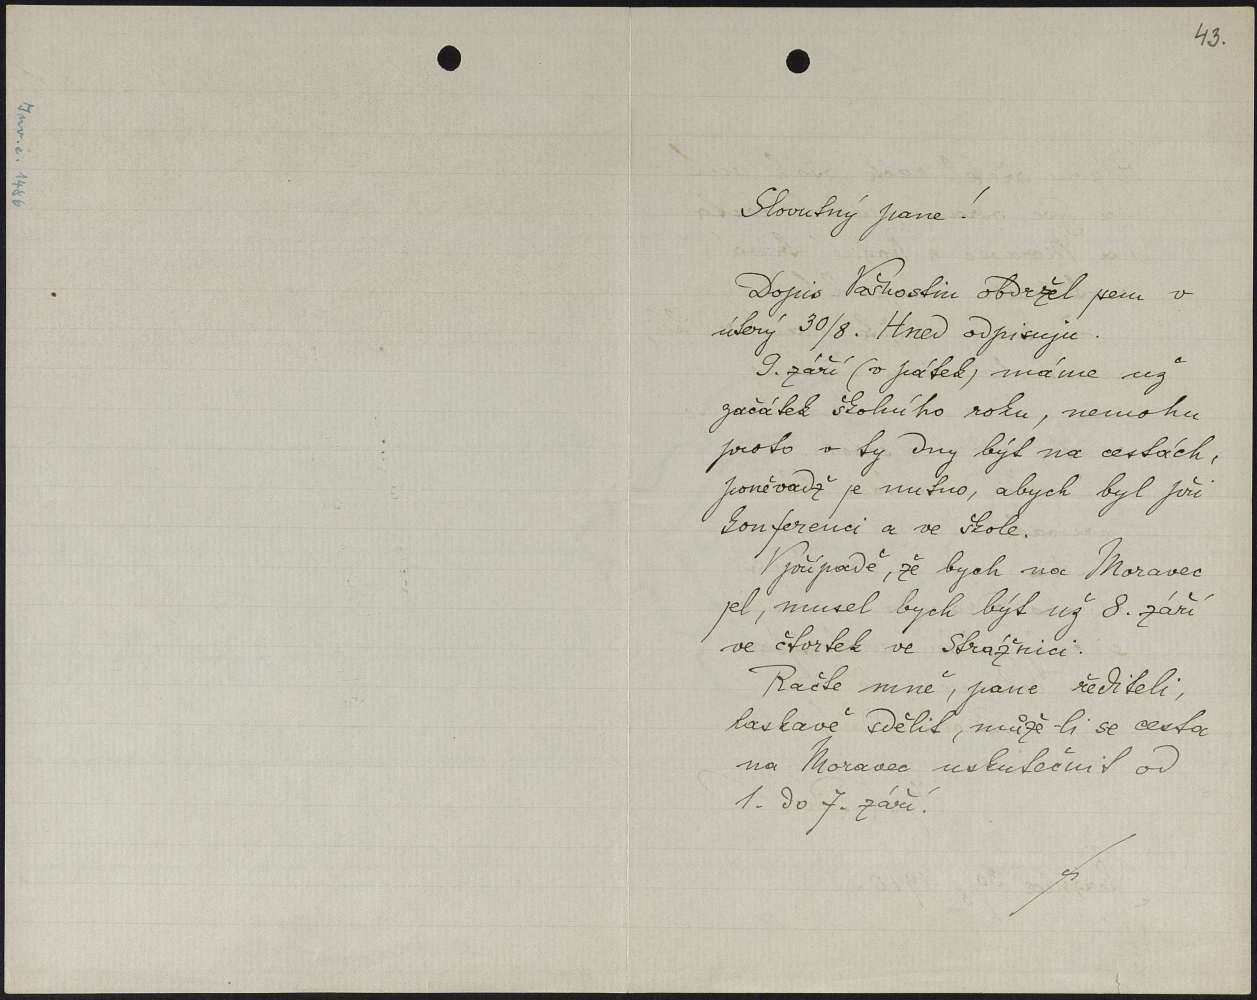 43.
Inv. č. 1486
Slovutný pane!
Dopis Vašnostin obdržel jsem v
úterý 30/8. Hned odpisuju.
9. září (v pátek) máme už
začátek školního roku, nemohu
proto v ty dny být na cestách,
poněvadž je nutno, abych byl při
konferenci a ve škole.
V případě, že bych na Moravec
jel, musel bych být už 8. září
ve čtvrtek ve Strážnici.
Račte mně, pane řediteli,
laskavě sdělit, může-li se cesta
na Moravec uskutečnit od
1. do 7. září.